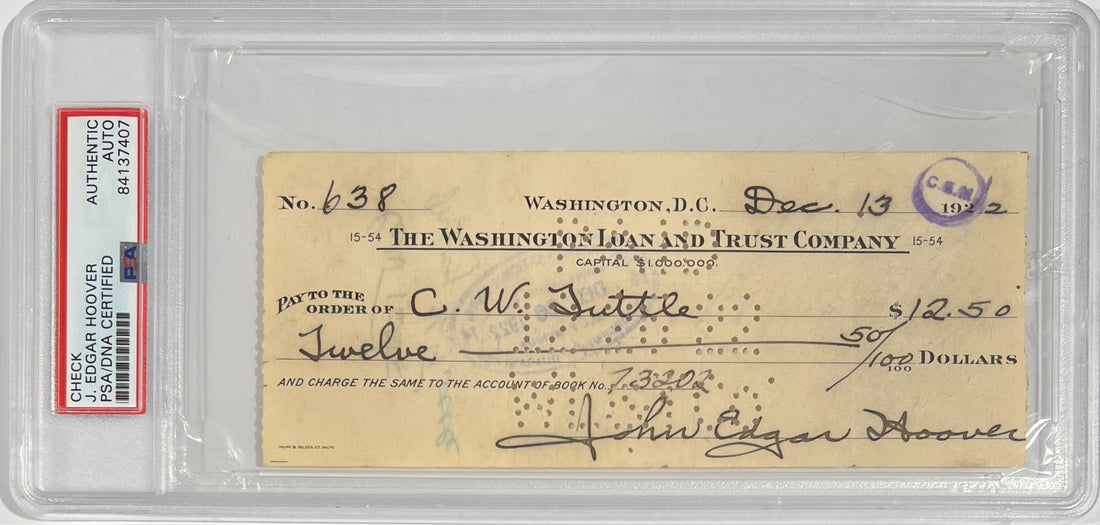 CHECK
J. EDGAR HOOVER
PSA/DNA CERTIFIED
AUTHENTIC
AUTO
84137407
PSA
No. 638 WASHINGTON, D.C. Dec. 13 1922
C.E.W.
15-54 THE WASHINGTON LOAN AND TRUST COMPANY 15-54
CAPITAL $1,000,000.
PAY TO THE
ORDER OF C. W. Tuttle $12.50
Twelve 50/100 100 DOLLARS
AND CHARGE THE SAME TO THE ACCOUNT OF BOOK No. 73202
John Edgar Hoover